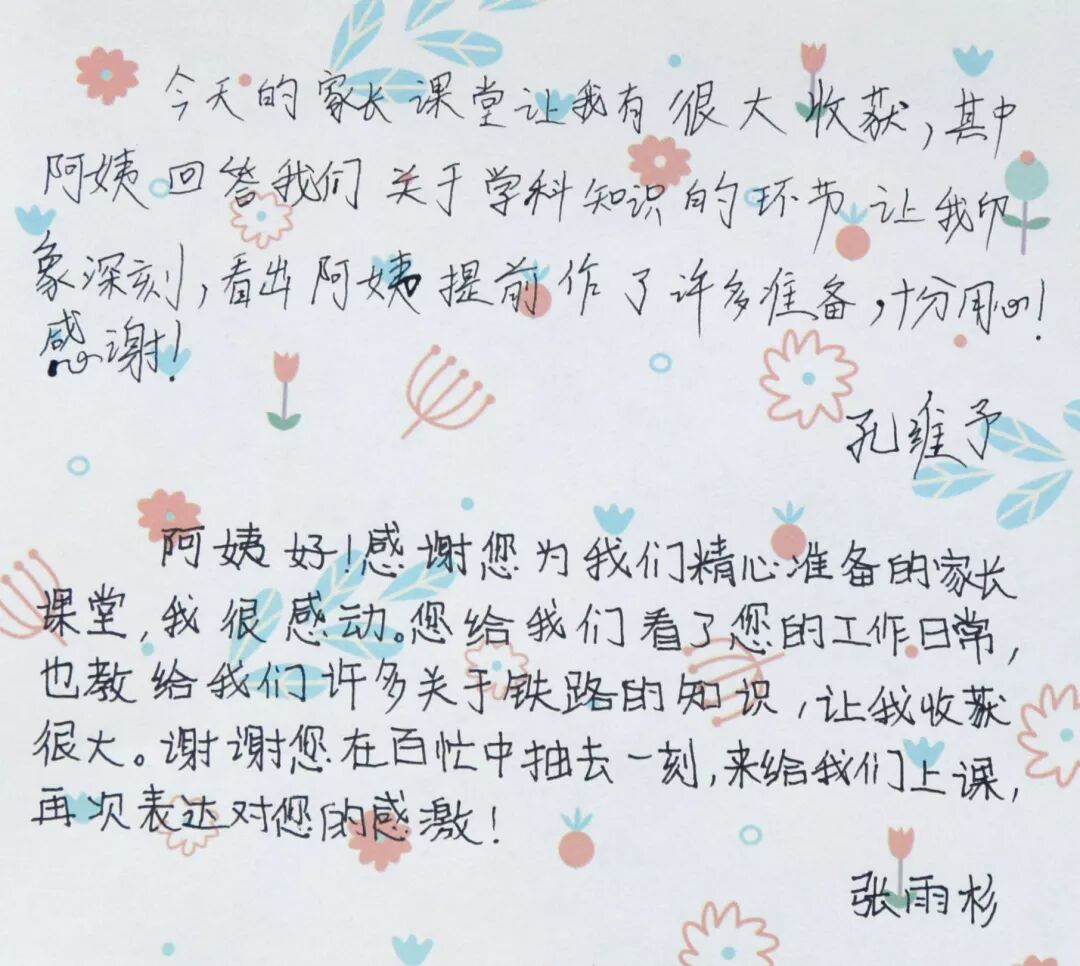 今天的家长课堂让我有很大收获，其中
阿姨回答我们关于学科知识的环节让我印
象深刻，看出阿姨提前作了许多准备，十分用心！
感谢！
孔维予
阿姨好！感谢您为我们精心准备的家长
课堂，我很感动。您给我们看了您的工作日常，
也教给我们许多关于铁路的知识，让我收获
很大。谢谢您在百忙中抽去一刻，来给我们上课，
再次表达对您的感激！
张雨杉